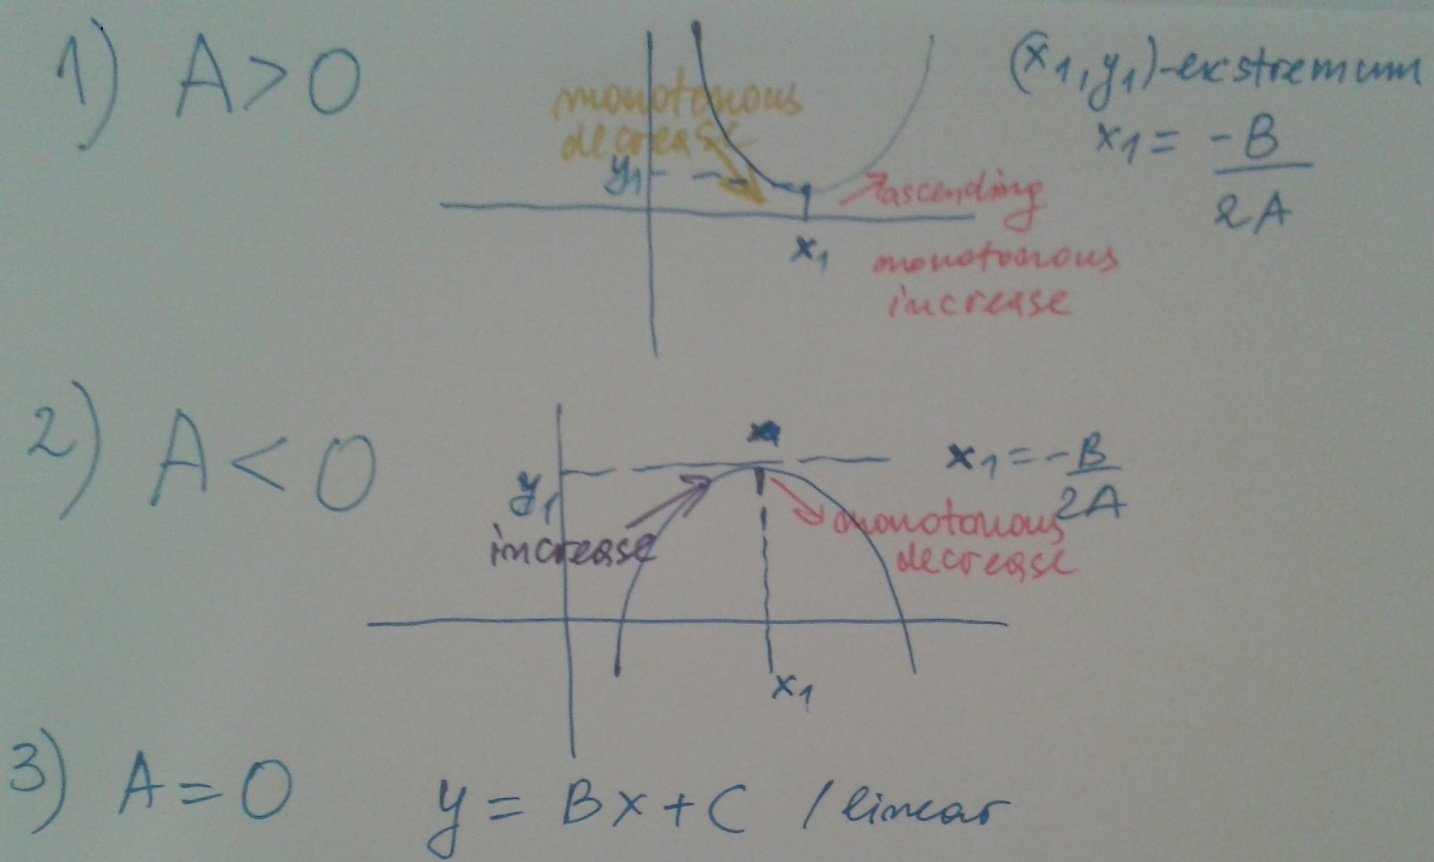 1) A>0
monotonous
decrease
y1
x1
ascending
monotonous
increase
(x1,y1)-exstremum
x1 = -B
2A
2) A<0
y1
increase
x1
monotonous
decrease
x1=-B
2A
3) A=0 y = Bx+C /linear